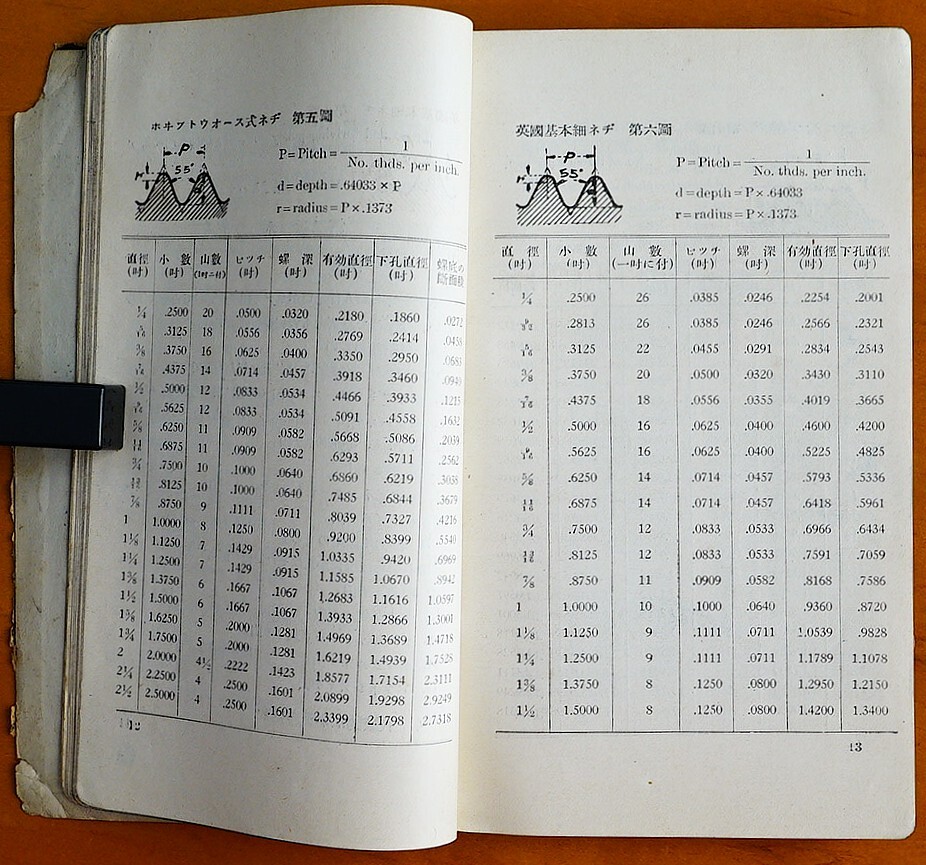 ホヰツトウオース式ネヂ 第五圖
P
r
55°
P=Pitch= 1
No. thds. per inch.
d=depth=.64033 × P
r=radius=P×.1373
直徑 小數 山數 ピツチ 螺深 有効直徑 下孔直徑 螺底の
(吋) (吋) (1吋ニ付) (吋) (吋) (吋) (吋) 斷面積
¼ .2500 20 .0500 .0320 .2180 .1860 .0272
5/16 .3125 18 .0556 .0356 .2769 .2414 .0458
⅜ .3750 16 .0625 .0400 .3350 .2950 .0683
7/16 .4375 14 .0714 .0457 .3918 .3460 .0940
½ .5000 12 .0833 .0534 .4466 .3933 .1215
9/16 .5625 12 .0833 .0534 .5091 .4558 .1632
⅝ .6250 11 .0909 .0582 .5668 .5086 .2039
11/16 .6875 11 .0909 .0582 .6293 .5711 .2562
¾ .7500 10 .1000 .0640 .6860 .6219 .3038
13/16 .8125 10 .1000 .0640 .7485 .6844 .3679
⅞ .8750 9 .1111 .0711 .8039 .7327 .4216
1 1.0000 8 .1250 .0800 .9200 .8399 .5540
1⅛ 1.1250 7 .1429 .0915 1.0335 .9420 .6969
1¼ 1.2500 7 .1429 .0915 1.1585 1.0670 .8942
1⅜ 1.3750 6 .1667 .1067 1.2683 1.1616 1.0597
1½ 1.5000 6 .1667 .1067 1.3933 1.2866 1.3001
1⅝ 1.6250 5 .2000 .1281 1.4969 1.3689 1.4718
1¾ 1.7500 5 .2000 .1281 1.6219 1.4939 1.7528
2 2.0000 4½ .2222 .1423 1.8577 1.7154 2.3111
2¼ 2.2500 4 .2500 .1601 2.0899 1.9298 2.9249
2½ 2.5000 4 .2500 .1601 2.3399 2.1798 2.7318
12
英國基本細ネヂ 第六圖
P
r
55°
P=Pitch= 1
No. thds. per inch.
d=depth=P×.64033
r=radius=P×.1373
直徑 小數 山數 ピツチ 螺深 有効直徑 下孔直徑
(吋) (吋) (一吋に付) (吋) (吋) (吋) (吋)
¼ .2500 26 .0385 .0246 .2254 .2001
9/32 .2813 26 .0385 .0246 .2566 .2321
5/16 .3125 22 .0455 .0291 .2834 .2543
⅜ .3750 20 .0500 .0320 .3430 .3110
7/16 .4375 18 .0556 .0355 .4019 .3665
½ .5000 16 .0625 .0400 .4600 .4200
9/16 .5625 16 .0625 .0400 .5225 .4825
⅝ .6250 14 .0714 .0457 .5793 .5336
11/16 .6875 14 .0714 .0457 .6418 .5961
¾ .7500 12 .0833 .0533 .6966 .6434
13/16 .8125 12 .0833 .0533 .7591 .7059
⅞ .8750 11 .0909 .0582 .8168 .7586
1 1.0000 10 .1000 .0640 .9360 .8720
1⅛ 1.1250 9 .1111 .0711 1.0539 .9828
1¼ 1.2500 9 .1111 .0711 1.1789 1.1078
1⅜ 1.3750 8 .1250 .0800 1.2950 1.2150
1½ 1.5000 8 .1250 .0800 1.4200 1.3400
13